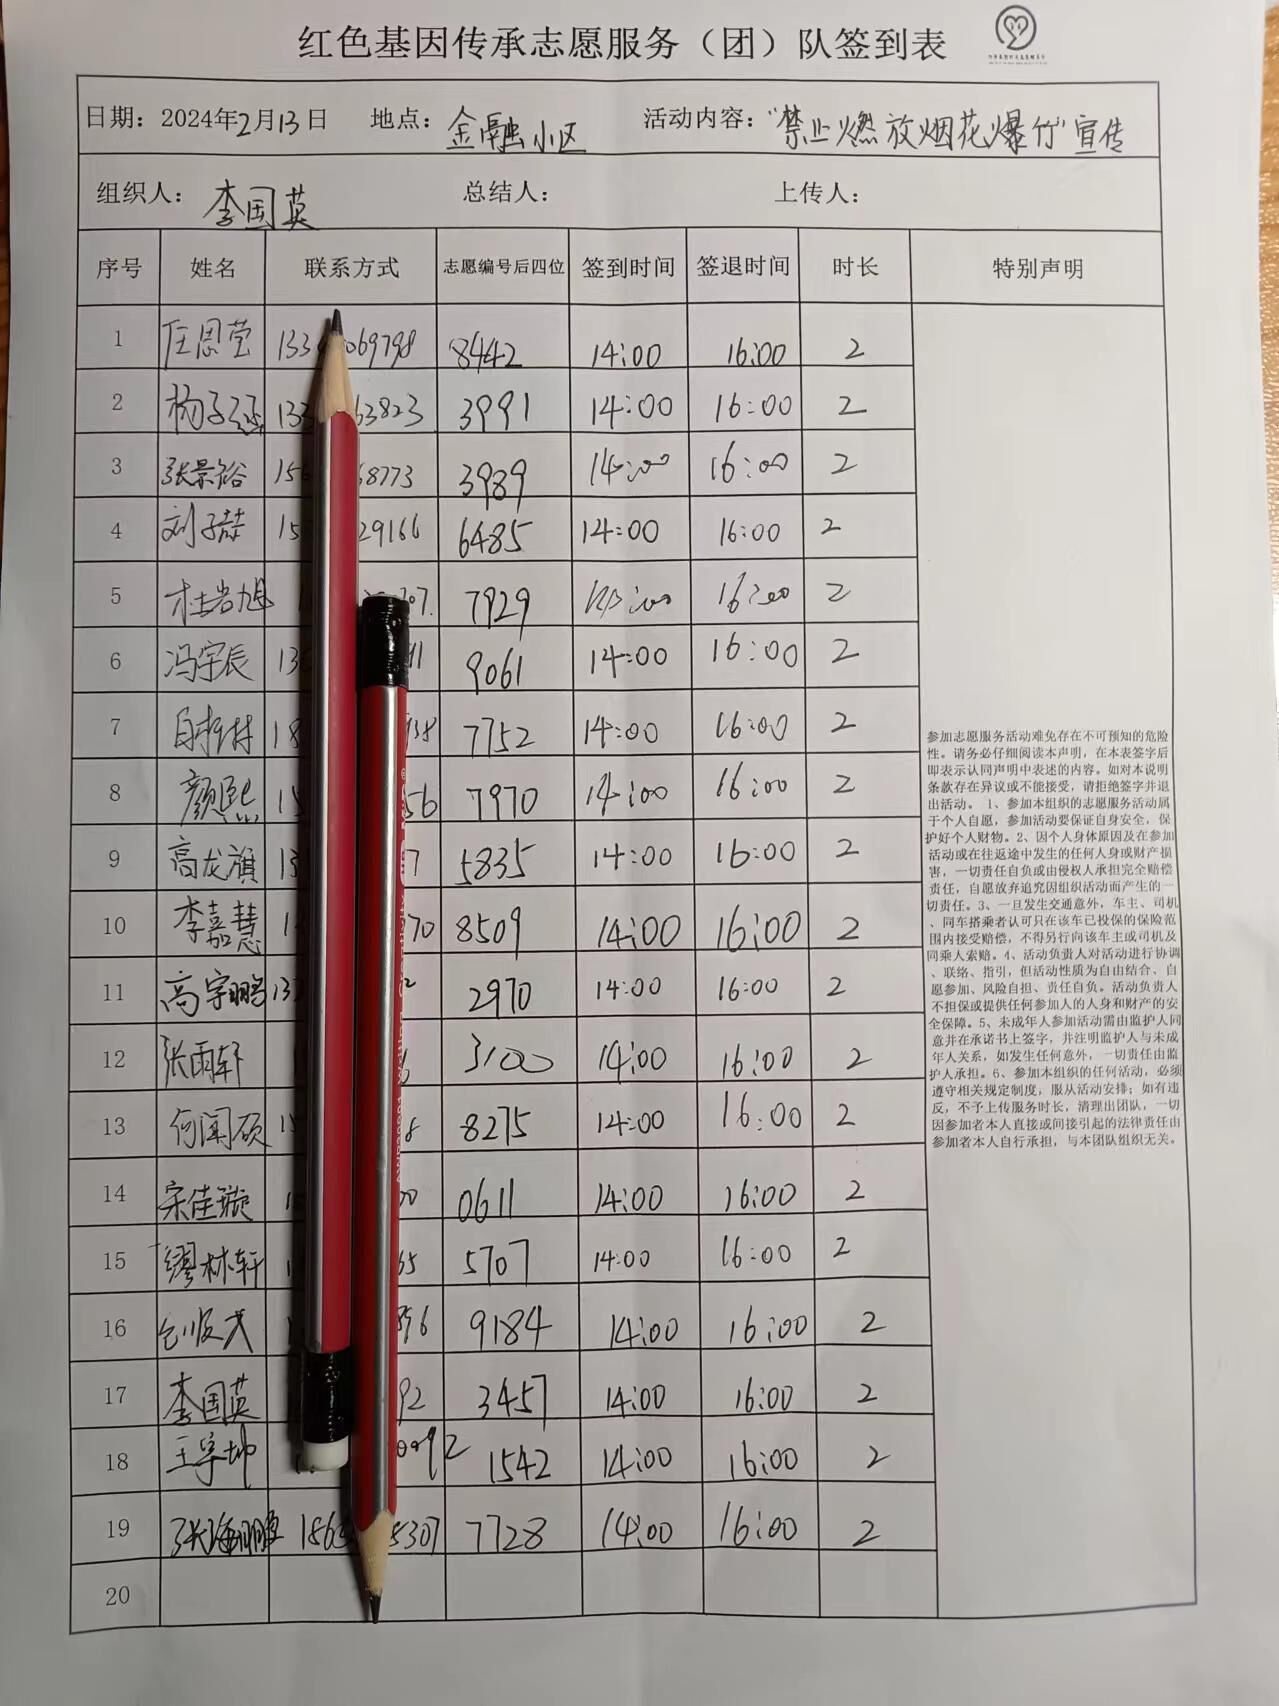 红色基因传承志愿服务（团）队签到表
日期：2024年2月13日 地点：金融小区 活动内容："禁止燃放烟花爆竹"宣传
组织人：李国英 总结人： 上传人：
序号 姓名 联系方式 志愿编号后四位 签到时间 签退时间 时长 特别声明
1 任思莹 133 069798 8442 14:00 16:00 2
2 杨子 133 63823 3991 14:00 16:00 2
3 张景裕 15 68773 3989 14:00 16:00 2
4 刘子喆 15 29166 6485 14:00 16:00 2
5 杜岩旭 1 707 7929 16:00 2
6 冯宇辰 13 11 9061 14:00 16:00 2
7 18 938 7752 14:00 16:00 2
8 颜熙 15 56 7970 14:00 16:00 2
9 高龙旗 13 7 5835 14:00 16:00 2
10 李嘉慧 1 70 8509 14:00 16:00 2
11 高宇鹏 133 2 2970 14:00 16:00 2
12 张雨轩 1 3100 14:00 16:00 2
13 何闻硕 15 8 8275 14:00 16:00 2
14 宋佳璇 15 00 0611 14:00 16:00 2
15 缪林轩 1 65 5707 14:00 16:00 2
16 896 9184 14:00 16:00 2
17 李国英 92 3457 14:00 16:00 2
18 王宇坤 0092 1542 14:00 16:00 2
19 张海鹏 186 5307 7728 14:00 16:00 2
20
参加志愿服务活动难免存在不可预知的危险
性。请务必仔细阅读本声明，在本表签字后
即表示认同声明中表述的内容。如对本说明
条款存在异议或不能接受，请拒绝签字并退
出活动。 1、参加本组织的志愿服务活动属
于个人自愿，参加活动要保证自身安全，保
护好个人财物。2、因个人身体原因及在参加
活动或在往返途中发生的任何人身或财产损
害，一切责任自负或由侵权人承担完全赔偿
责任，自愿放弃追究因组织活动而产生的一
切责任。3、一旦发生交通意外，车主、司机
、同车搭乘者认可只在该车已投保的保险范
围内接受赔偿，不得另行向该车主或司机及
同乘人索赔。4、活动负责人对活动进行协调
、联络、指引，但活动性质为自由结合、自
愿参加、风险自担、责任自负。活动负责人
不担保或提供任何参加人的人身和财产的安
全保障。5、未成年人参加活动需由监护人同
意并在承诺书上签字，并注明监护人与未成
年人关系，如发生任何意外，一切责任由监
护人承担。6、参加本组织的任何活动，必须
遵守相关规定制度，服从活动安排；如有违
反，不予上传服务时长，清理出团队，一切
因参加者本人直接或间接引起的法律责任由
参加者本人自行承担，与本团队组织无关。